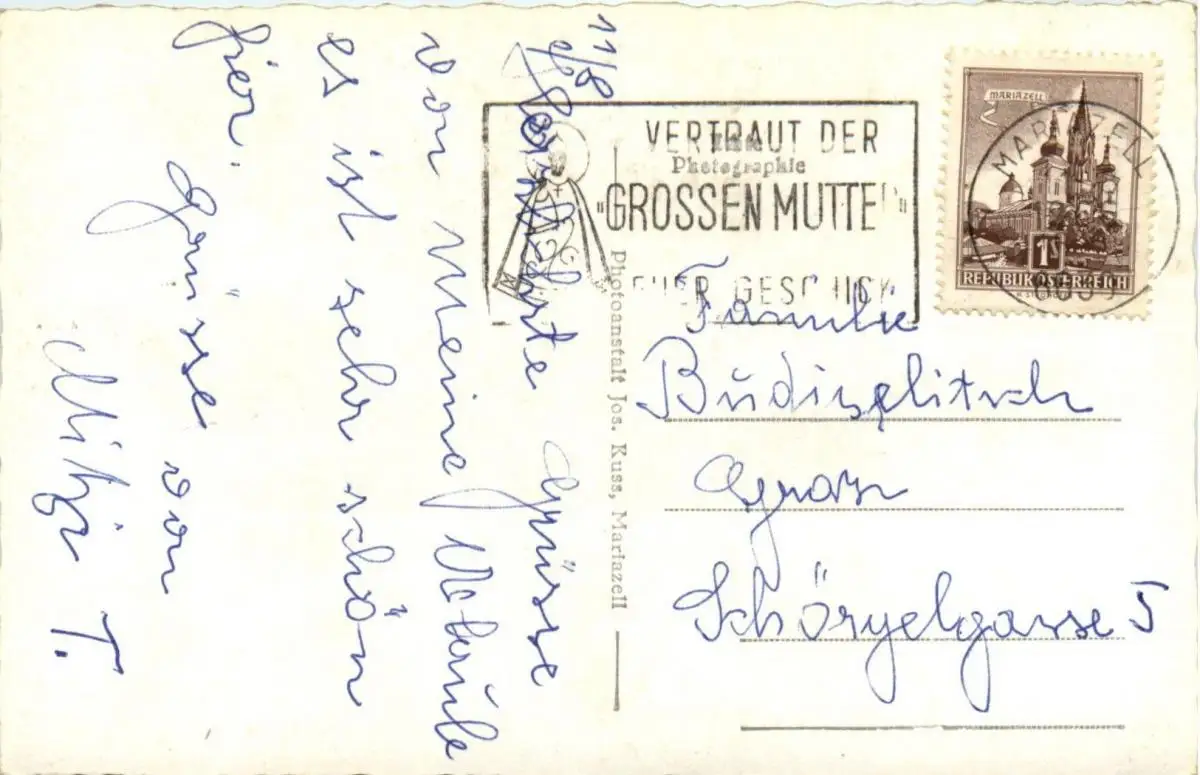 11/8
Herzlichste Grüsse
von meine Urlaube
es ist sehr schön
hier.
Grüsse von
Mitzi T.
VERTRAUT DER
"GROSSEN MUTTER"
EUER GESCHICK
Echte
Photographie
Photoanstalt Jos. Kuss, Mariazell
MARIAZELL
1S
REPUBLIK ÖSTERREICH
MARIAZELL
Familie
Budiselitsch
Graz
Schörgelgasse 5